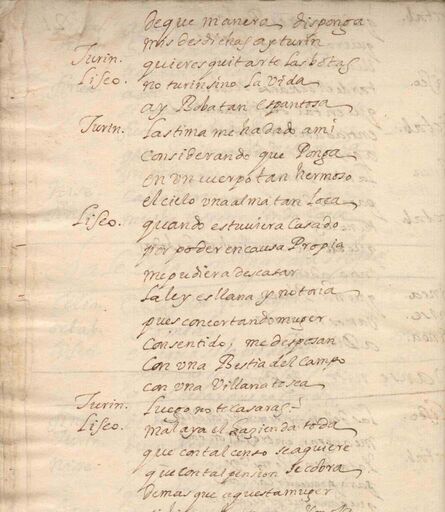 de que manera disponga
mis desdichas ay turin
Turin. quieres quitarte las botas
Liseo. no turin sino la vida
ay Boba tan espantosa
Turin. Lastima me ha dado a mi
considerando que Ponga
en un cuerpo tan hermoso
el cielo una alma tan loca
Liseo. quando estuviera Casado
por poder en causa Propia
me pudiera descasar
La ley es llana y notoria
pues concertando muger
Con sentido, me desposan
Con una Bestia del Campo
con una Villana tosca
Turin. Luego no te Casaras?
Liseo. mal aya la hazienda toda
que con tal censo se aquiere
que con tal pension se cobra
demas que aquesta muger